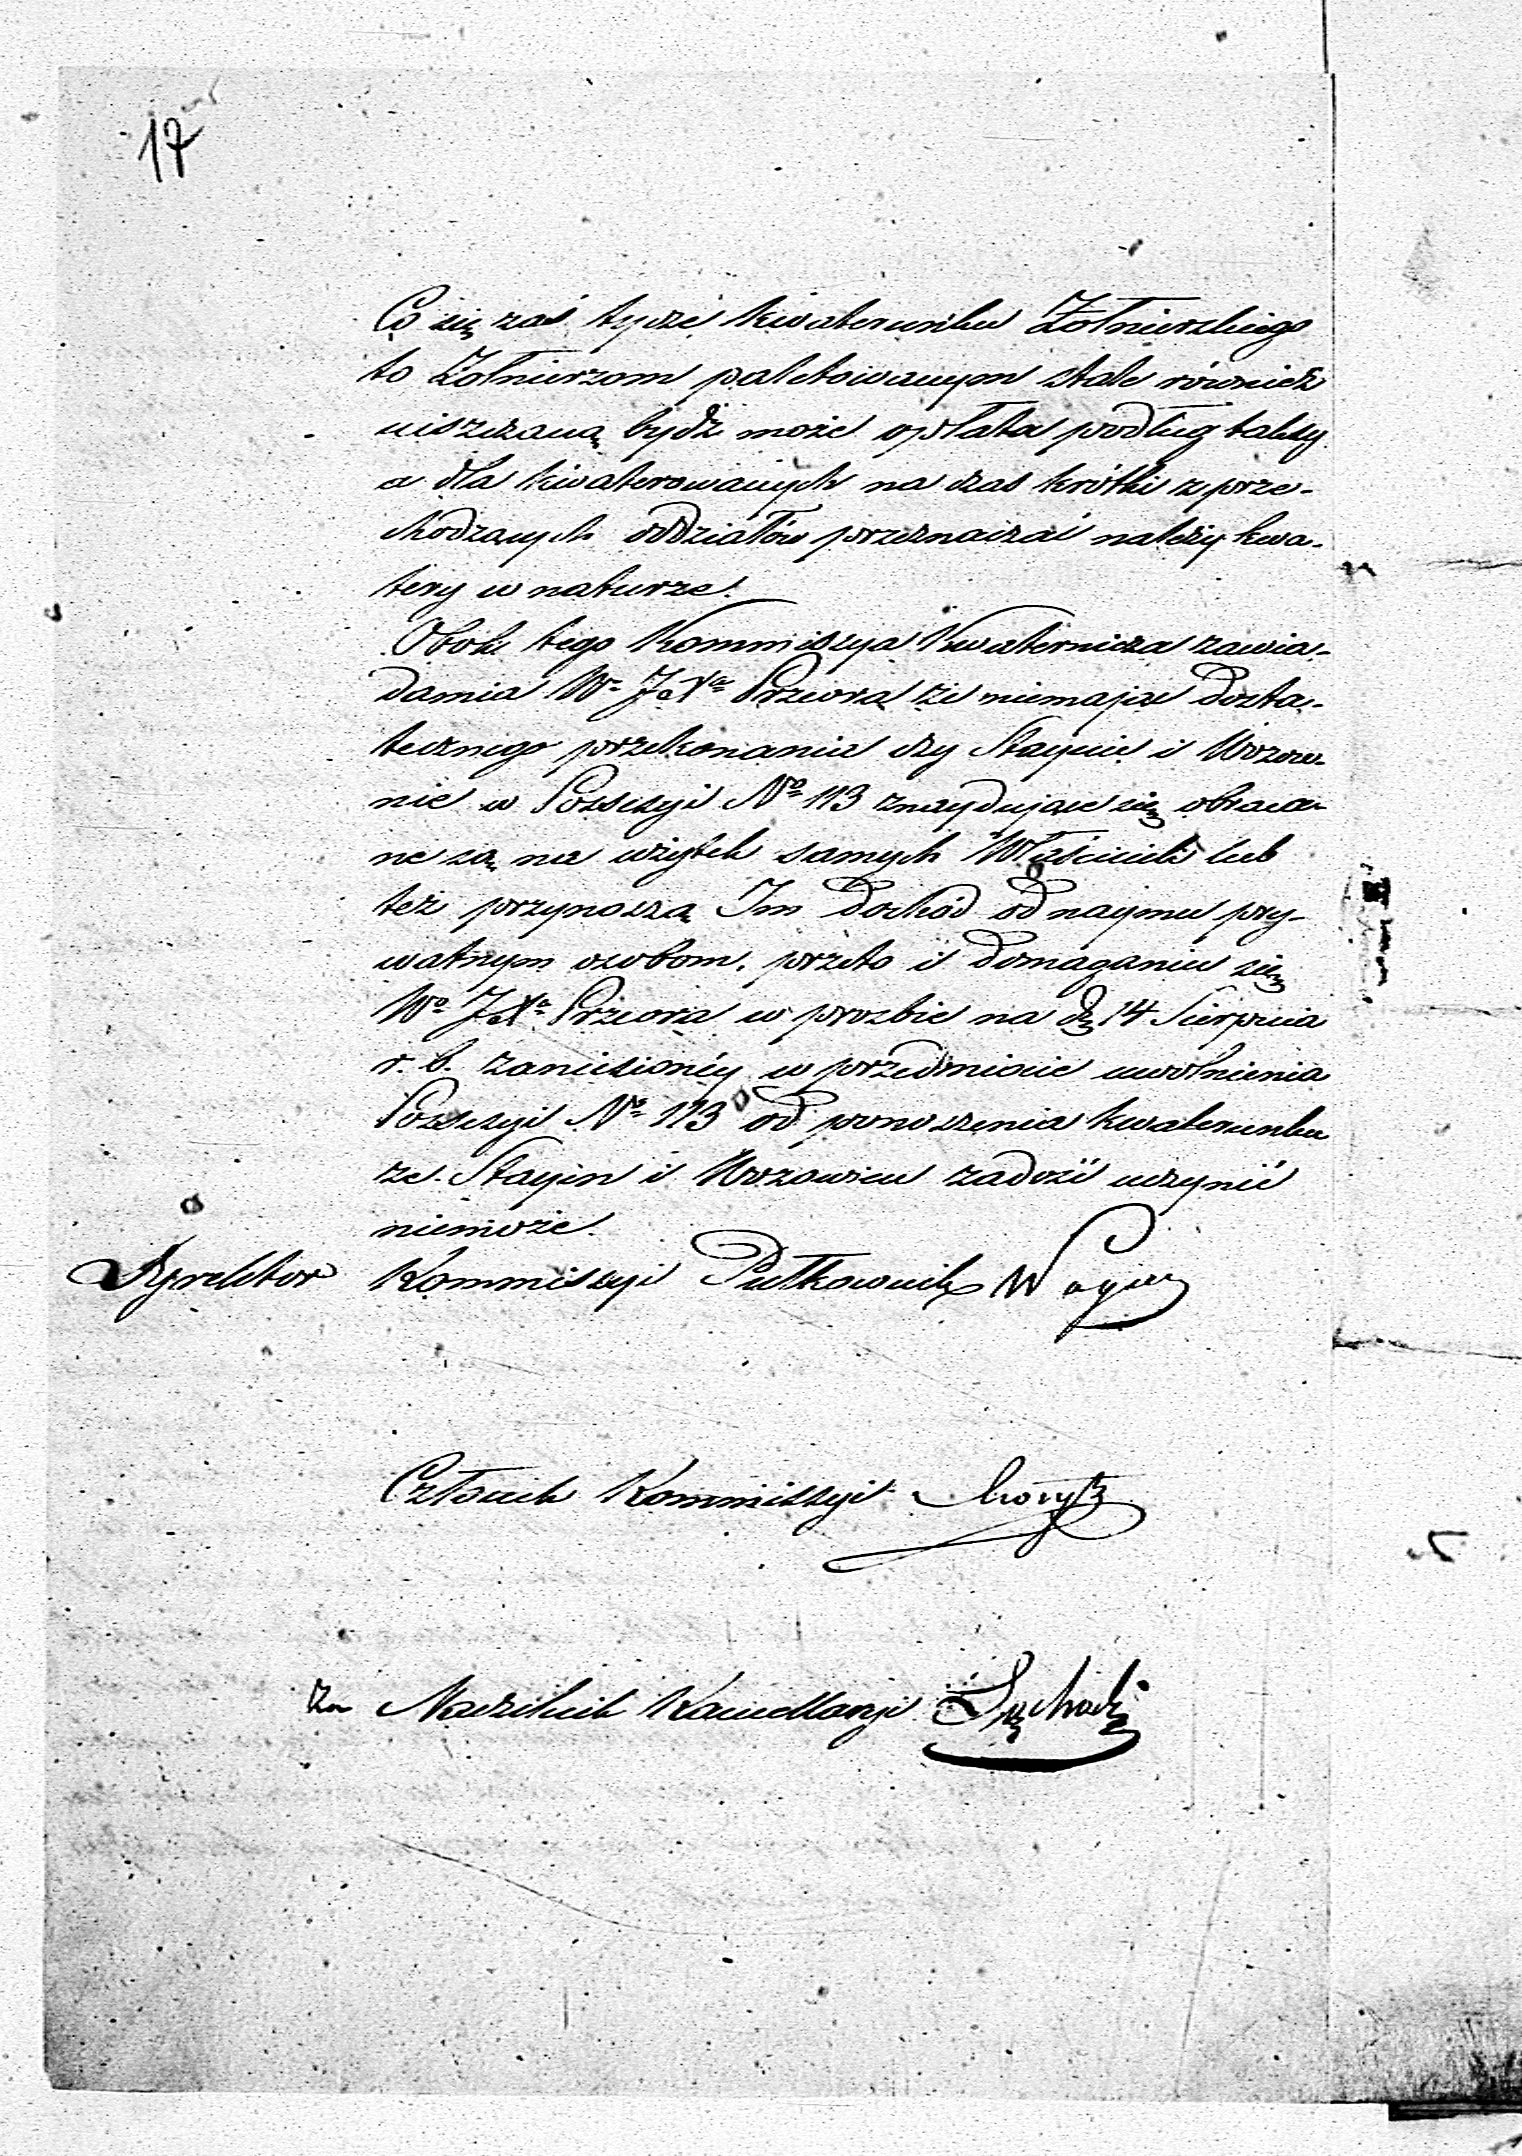 17
Co się zaś tycze kwaterunku Żołnierskiego
to Żołnierzom paletowanym stale również
uiszczaną bydź może opłata podług taksy
a dla kwaterowanych na czas krótki z prze-
chodzących oddziałów przeznaczać należy kwa-
tery w naturze.
Obok tego Kommissya Kwaternicza zawia-
damia Wo JXa Przeora że niemając dosta-
tecznego przekonania czy Staynie i Wozow-
nie w Possesyi No 113 znaydujące się obraca-
ne są na użytek samych Właścicieli lub
też przynoszą Im dochód od naymu pry-
watnym osobom, przeto i domaganiu się
Wo JXa Przeora w prozbie na d 14 Sierpnia
r. b. zaniesionéy w przedmiocie uwolnienia
Possesyi No 113 od ponoszenia kwaterunku
ze Stayin i Wozowien zadość uczynić
niemoże.
Dyrektor Kommissyi Pułkownik
Członek Kommissyi
za Naczelnik Kancellaryi